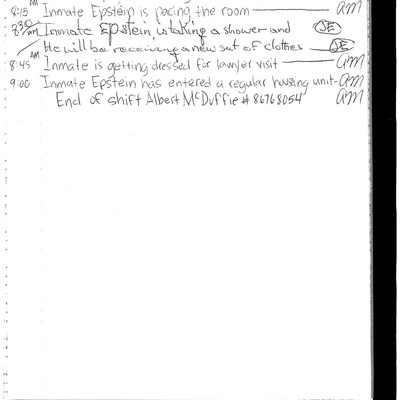 8:15 AM Inmate Epstein is pacing the room AM
8:30 AM Inmate Epstein is taking a shower and JE
He will be receiving a new set of clothes JE
8:45 AM Inmate is getting dressed for lawyer visit AM
9:00 Inmate Epstein has entered a regular housing unit- AM
End of shift Albert McDuffie # 86768054 AM